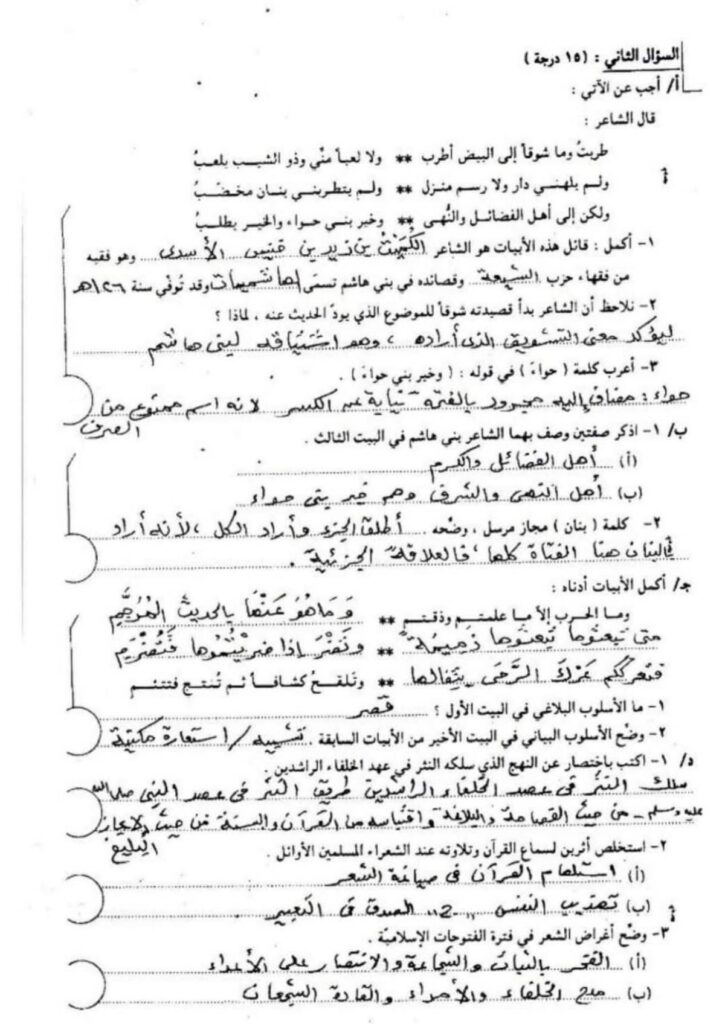 السؤال الثاني : ( ١٥ درجة )
أ/ أجب عن الآتي :
قال الشاعر :
طربتُ وما شوقاً إلى البيض أطرب ** ولا لعباً منّي وذو الشيب يلعبُ
ولم يلهني دار ولا رسم منزل ** ولم يتطربني بنان مخضّبُ
ولكن إلى أهل الفضائل والنُّهى ** وخير بني حواء والخير يطلبُ
١- أكمل : قائل هذه الأبيات هو الشاعر الكُمَيْتُ بن زيد بن خنيس الأسدى وهو فقيه
من فقهاء حزب الشيعة وقصائده في بني هاشم تسمّى الهاشميات وقد تُوفّي سنة ١٢٦هـ
٢- نلاحظ أن الشاعر بدأ قصيدته شوقاً للموضوع الذي يودّ الحديث عنه ، لماذا ؟
ليؤكد معنى التشويق الذى أراده ، وهو اشتياقه لبنى هاشم
٣- أعرب كلمة ( حواءَ ) في قوله : ( وخير بني حواءَ ) .
حواء : مضاف إليه مجرور بالفتحة نيابة عن الكسر لانه اسم ممنوع من
الصرف
ب/ ١- اذكر صفتين وصف بهما الشاعر بني هاشم في البيت الثالث .
(أ) أهل الفضائل والكرم
(ب) أهل النهى والشرف وهم خير بنى حواء
٢- كلمة ( بنان ) مجاز مرسل ، وضّحه . أطلق الجزء وأراد الكل ، لأنه أراد
بالبنان هنا الفتاة كلها فالعلاقة الجزئية .
جـ/ أكمل الأبيات أدناه :
وما الحرب إلا ما علمتم وذقتم ** وَمَا هُوَ عَنْهَا بالحديث المُرَجَّمِ
متى تبعثوها تبعثوها ذميمة ** وتَضْرَ إذا ضريْتُموها فَتَضْرَمِ
فتعرككم عَرْكَ الرَّحَى بِثِفالها ** وتلقحْ كشافاً ثم تُنتج فتتئم
١- ما الأسلوب البلاغي في البيت الأول ؟ قصر
٢- وضّح الأسلوب البياني في البيت الأخير من الأبيات السابقة . تشبيه / استعارة مكنية
د/ ١- اكتب باختصار عن النهج الذي سلكه النثر في عهد الخلفاء الراشدين .
سلك النثر فى عصر الخلفاء الراشدين طريق النثر فى عصر النبى صلى الله
عليه وسلم - من حيث الفصاحة والبلاغة واقتباسه من القرآن والسنة من حيث الإيجاز
البليغ
٢- استخلص أثرين لسماع القرآن وتلاوته عند الشعراء المسلمين الأوائل .
(أ) استلهام القرآن فى صياغة الشعر
(ب) تهذيب النفس „ 2 „ الصدق فى التعبير
٣- وضّح أغراض الشعر في فترة الفتوحات الإسلاميّة .
(أ) الفخر بالثبات والشجاعة والانتصار على الأعداء
(ب) مدح الخلفاء والأمراء والقادة الشجعان